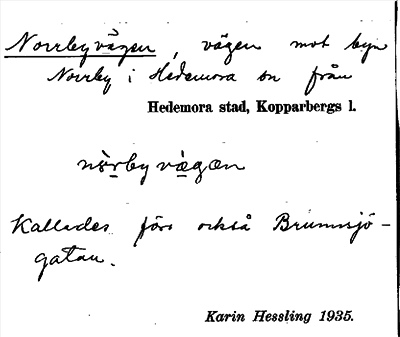 Norrbyvägen, vägen mot byn
Norrby i Hedemora sn från
Hedemora stad, Kopparbergs l.
nòrby vä̀gæn
Kallades förr också Brunnsjö-
gatan.
Karin Hessling 1935.